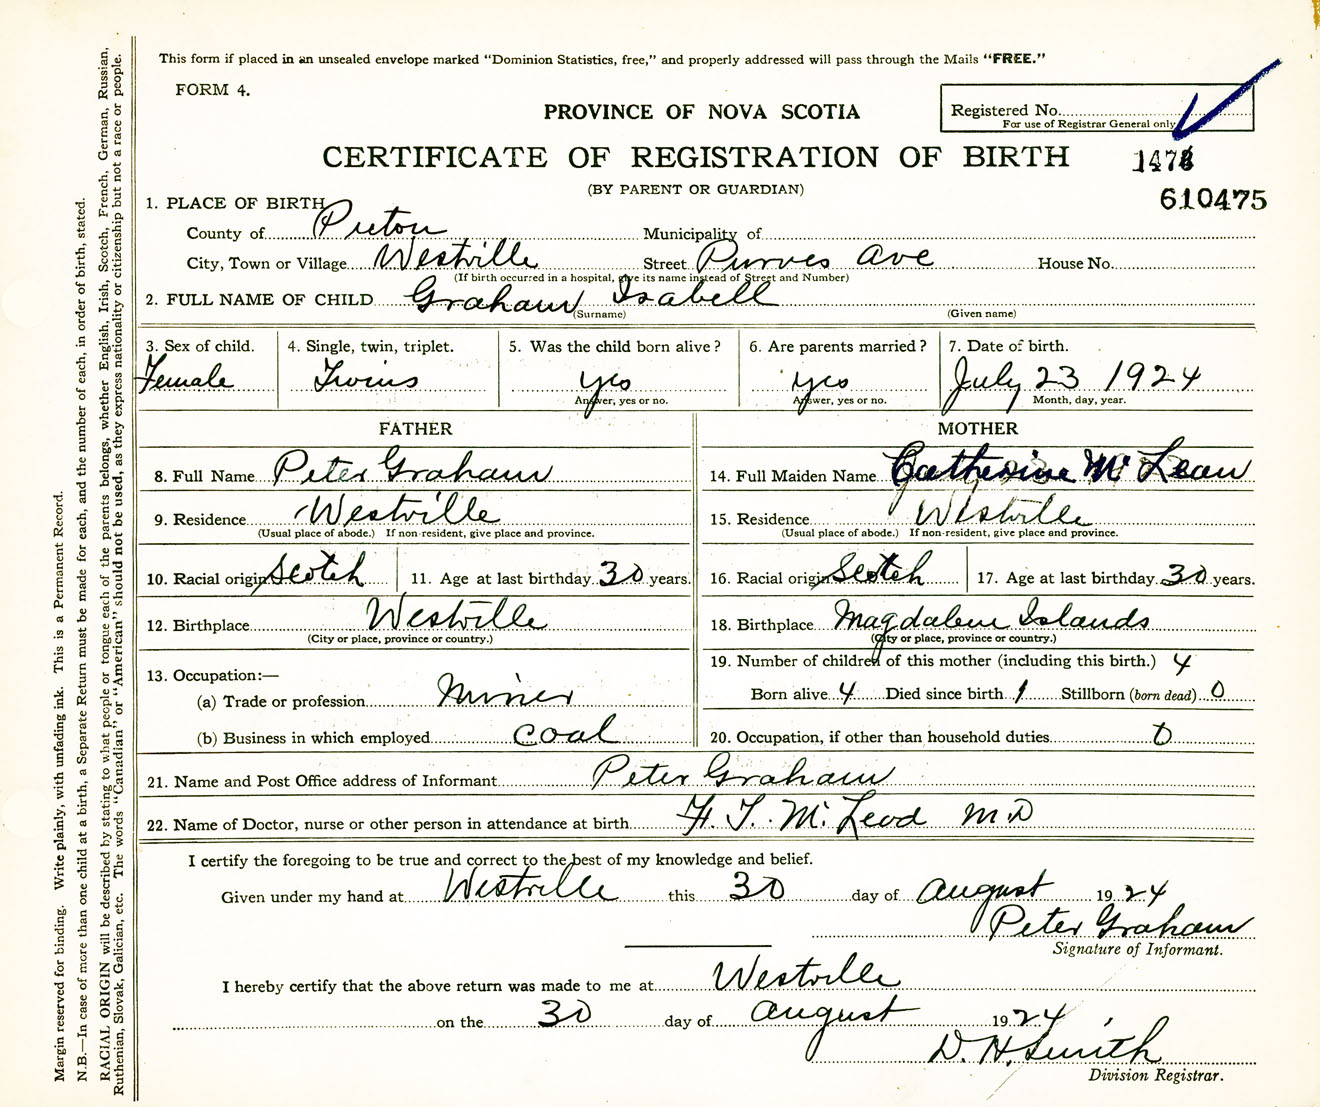 This form if placed in an unsealed envelope marked “Dominion Statistics, free,” and properly addressed will pass through the Mails “FREE.”
FORM 4.
Registered No.
For use of Registrar General only
PROVINCE OF NOVA SCOTIA
CERTIFICATE OF REGISTRATION OF BIRTH
147
(BY PARENT OR GUARDIAN)
610475
1. PLACE OF BIRTH
County of Pictou Municipality of
City, Town or Village Westville Street Purves Ave House No.
(If birth occurred in a hospital, give its name instead of Street and Number)
2. FULL NAME OF CHILD Graham Isabell
(Surname) (Given name)
3. Sex of child. 4. Single, twin, triplet. 5. Was the child born alive? 6. Are parents married? 7. Date of birth.
Female Twins yes yes July 23 1924
Answer, yes or no. Answer, yes or no. Month, day, year.
FATHER MOTHER
8. Full Name Peter Graham 14. Full Maiden Name Catherine Mc Lean
9. Residence Westville 15. Residence Westville
(Usual place of abode.) If non-resident, give place and province. (Usual place of abode.) If non-resident, give place and province.
10. Racial origin Scotch 11. Age at last birthday 30 years. 16. Racial origin Scotch 17. Age at last birthday 30 years.
12. Birthplace Westville 18. Birthplace Magdalene Islands
(City or place, province or country.) (City or place, province or country.)
19. Number of children of this mother (including this birth.) 4
13. Occupation:—
(a) Trade or profession Miner Born alive 4 Died since birth 1 Stillborn (born dead) 0
(b) Business in which employed coal 20. Occupation, if other than household duties 0
21. Name and Post Office address of Informant Peter Graham
22. Name of Doctor, nurse or other person in attendance at birth H. T. Mc Leod M.D
I certify the foregoing to be true and correct to the best of my knowledge and belief.
Given under my hand at Westville this 30 day of August 1924
Peter Graham
Signature of Informant.
I hereby certify that the above return was made to me at Westville
on the 30 day of August 1924
D. H. Smith
Division Registrar.
Margin reserved for binding. Write plainly, with unfading ink. This is a Permanent Record.
N.B.—In case of more than one child at a birth, a Separate Return must be made for each, and the number of each, in order of birth, stated.
RACIAL ORIGIN will be described by stating to what people or tongue each of the parents belongs, whether English, Irish, Scotch, French, German, Russian,
Ruthenian, Slovak, Galician, etc. The words “Canadian” or “American” should not be used, as they express nationality or citizenship but not a race or people.